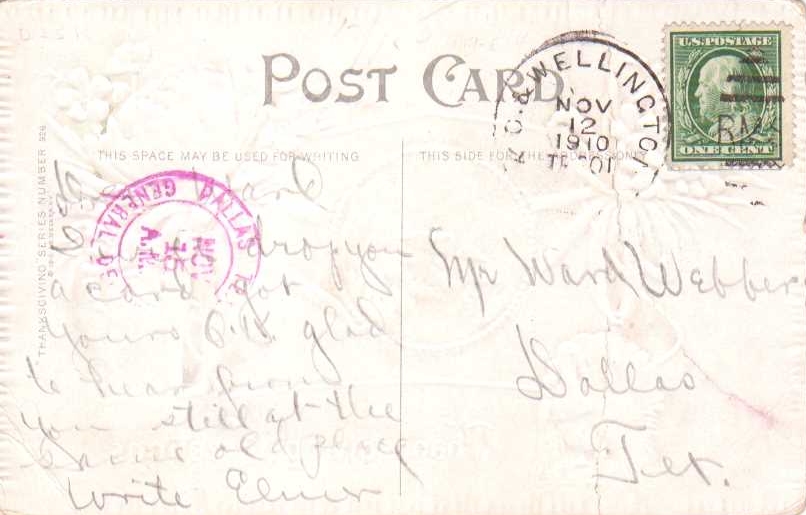 POST CARD
THIS SPACE MAY BE USED FOR WRITING
THIS SIDE FOR THE ADDRESS ONLY
THANKSGIVING SERIES NUMBER
U.S. POSTAGE
ONE CENT
WELLINGTON
NOV
12
1910
DALLAS
GENERAL
NOV
15
A.M.
drop you
a card got
yours O.K. glad
to hear from
you still at the
same old place
write Elmer
Mr Ward Webber
Dallas
Tex.